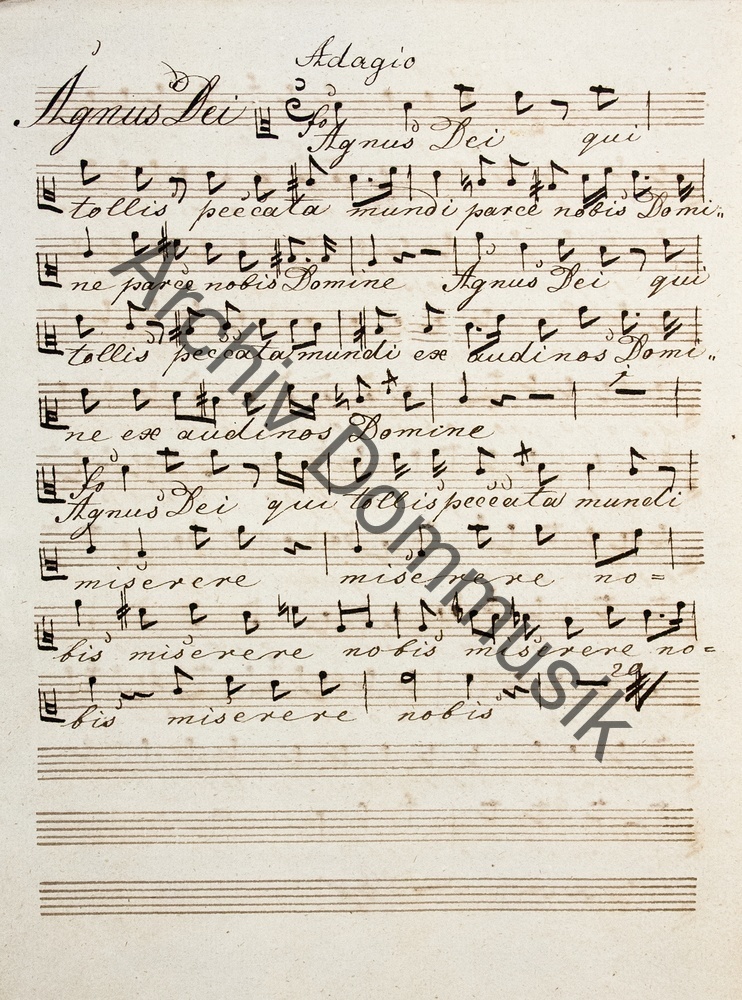 Adagio
Agnus Dei
fo
Agnus Dei qui
tollis peccata mundi parce nobis Domi..
ne parce nobis Domine Agnus Dei qui
tollis peccata mundi ex audi nos Domi..
ne ex audi nos Domine
1
fo
Agnus Dei qui tollis peccata mundi
miserere miserere no=
bis miserere nobis miserere no=
bis miserere nobis
Archiv Dommusik